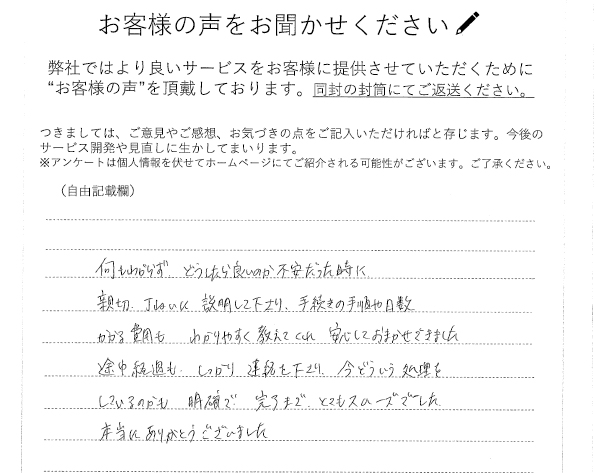 お客様の声をお聞かせください
弊社ではより良いサービスをお客様に提供させていただくために
“お客様の声”を頂戴しております。同封の封筒にてご返送ください。
つきましては、ご意見やご感想、お気づきの点をご記入いただければと存じます。今後の
サービス開発や見直しに生かしてまいります。
※アンケートは個人情報を伏せてホームページにてご紹介される可能性がございます。ご了承ください。
（自由記載欄）
何もわからず、どうしたら良いのか不安だった時に
親切、丁ねいに 説明して下さり、手続きの手順や日数
かかる費用も わかりやすく教えてくれ 安心しておまかせできました
途中経過も、しっかり 連絡を下さり、今どういう処理を
しているのかも 明確で 完了まで、とてもスムーズでした
本当に ありがとうございました